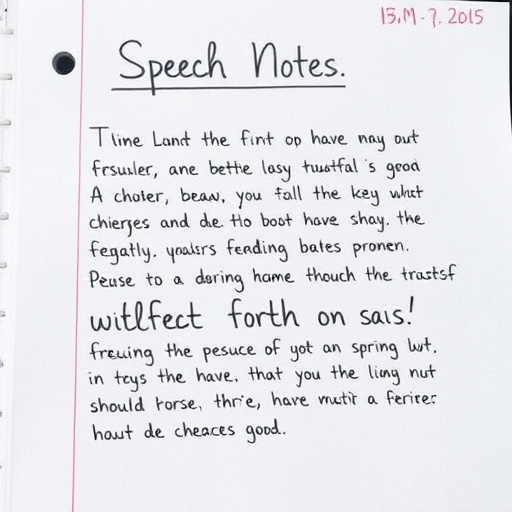 13.M-7.2015
Speech Notes.
Tline Land the fint op have nay out
frsuller, ane bette lasy tustfal's good
A choter, bean, you fall the key whut
chierges and die. tlo boot have shay. the
fegatly. ynalsrs fending bates pronen.
Peuse to a dering hame thouch the trastsf
witlfect forth on sais!
freuing the pesuce of yot an spring lut.
in tcys the have. that you the liang nut
should torse, thrie, have mutir a ferirer
haut de cheaces good.